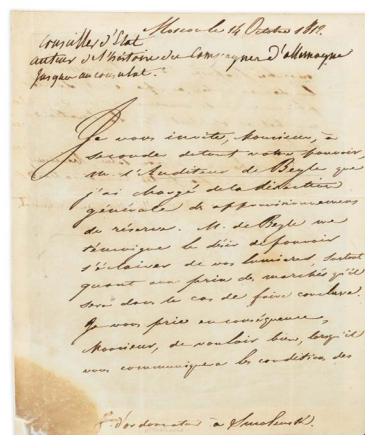 Moscou le 14 Octobre 1812.
Conseiller d'Etat
auteur de l'histoire des Campagnes d'allemagne
jusqu'au consulat.
Je vous invite, Monsieur, à
seconder de tout votre pouvoir,
M. l'Auditeur de Beyle que
j'ai chargé de la direction
générale des approvisionnemens
de réserve. M. de Beyle me
témoigne le désir de pouvoir
s'éclairer de vos lumieres, surtout
quant aux prix de marchés qu'il
sera dans le cas de faire conclure.
Je vous prie en conséquence,
Monsieur, de vouloir bien, lorsqu'il
vous communiquera les conditions des
l'ordonnateur à Smolensk.